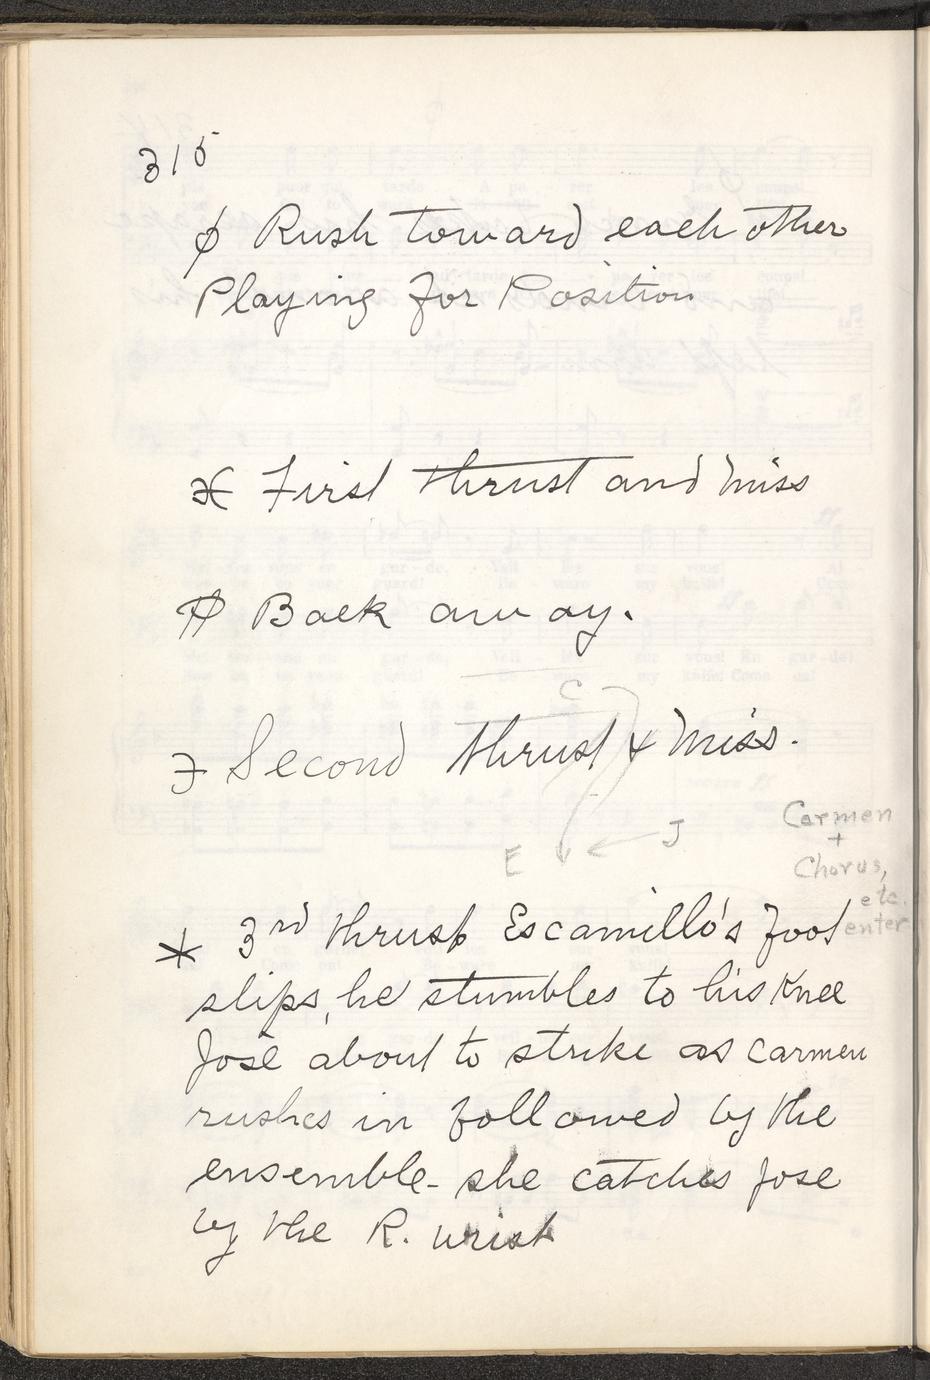 315
ϕ Rush toward each other
Playing for Position
First thrust and miss
Back away.
C
Second thrust & miss.
E J
Carmen
+
Chorus,
etc.
enter
* 3rd thrust Escamillo's foot
slips, he stumbles to his knee
José about to strike as Carmen
rushes in followed by the
ensemble - she catches Jose
by the R. wrist